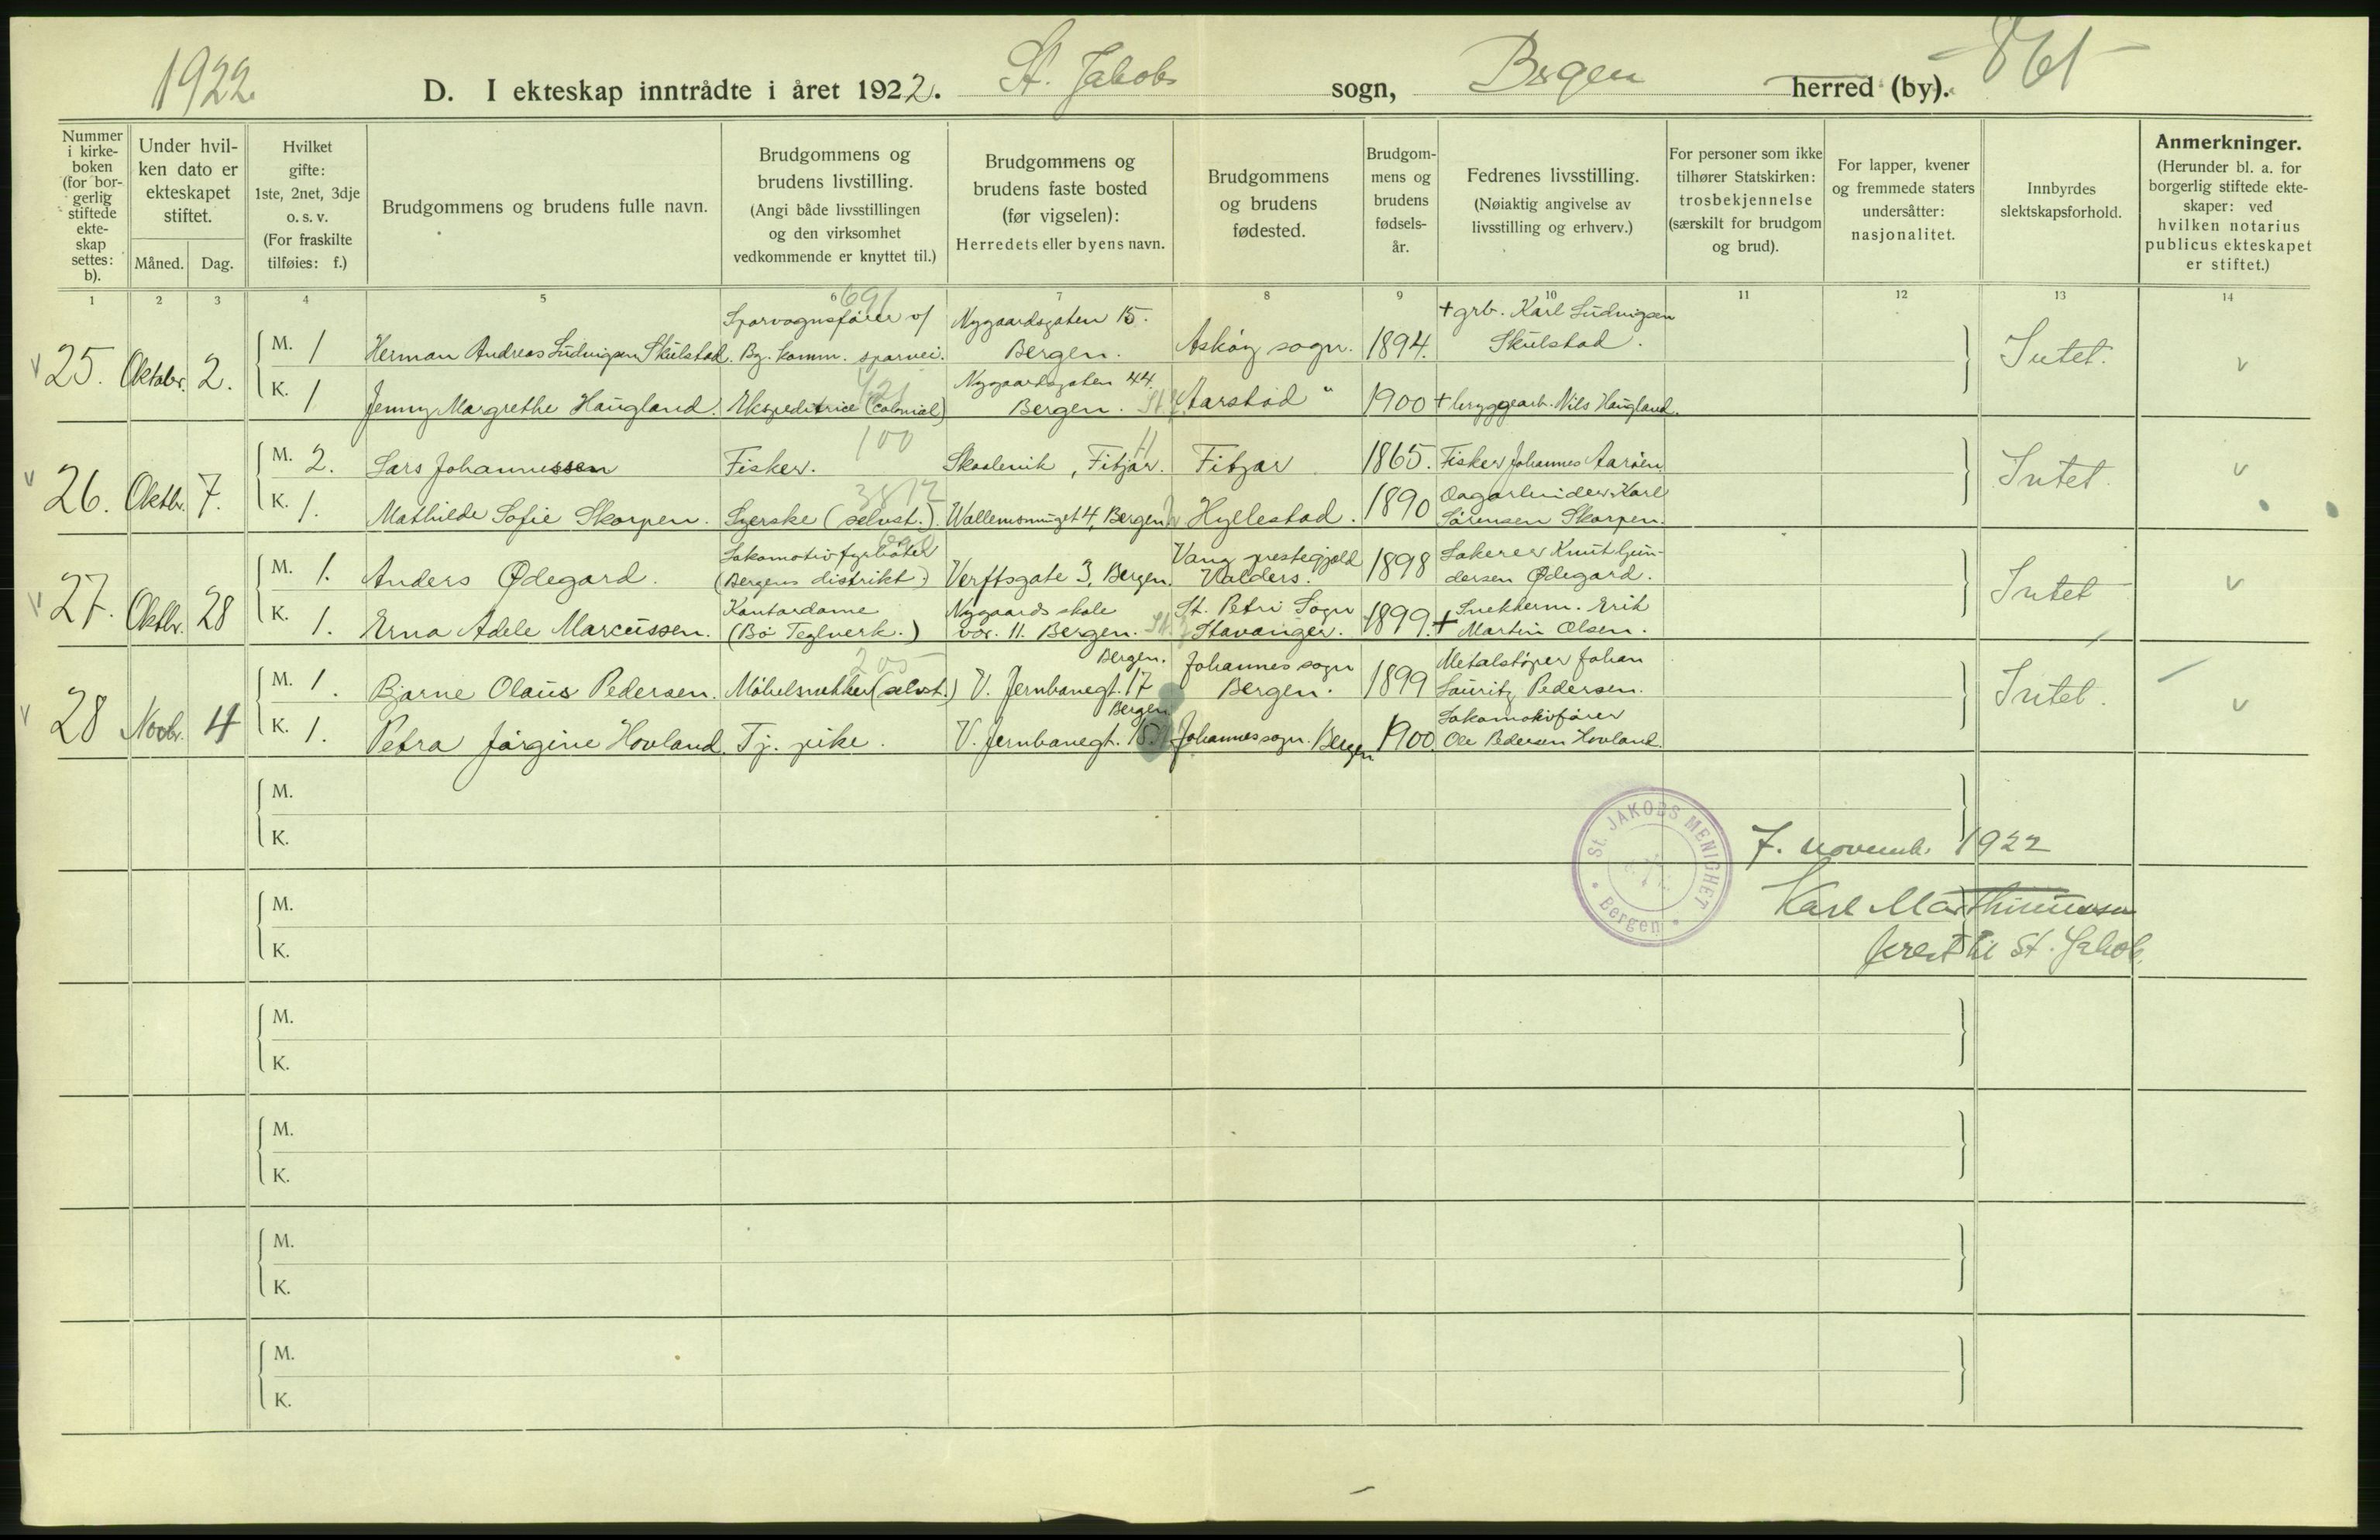 1922
D. I ekteskap inntrådte i året 1922. St. Jakobs sogn, Bergen herred (by). 861
Nummer i kirkeboken (for borgerlig stiftede ekteskap settes: b).
Under hvilken dato er ekteskapet stiftet.
Måned. Dag.
Hvilket gifte: 1ste, 2net, 3dje o. s. v. (For fraskilte tilføies: f.)
Brudgommens og brudens fulle navn.
Brudgommens og brudens livstilling. (Angi både livsstillingen og den virksomhet vedkommende er knyttet til.)
Brudgommens og brudens faste bosted (før vigselen): Herredets eller byens navn.
Brudgommens og brudens fødested.
Brudgommens og brudens fødselsår.
Fedrenes livsstilling. (Nøiaktig angivelse av livsstilling og erhverv.)
For personer som ikke tilhører Statskirken: trosbekjennelse (særskilt for brudgom og brud).
For lapper, kvener og fremmede staters undersåtter: nasjonalitet.
Innbyrdes slektskapsforhold.
Anmerkninger. (Herunder bl. a. for borgerlig stiftede ekteskaper: ved hvilken notarius publicus ekteskapet er stiftet.)
1 2 3 4 5 6 7 8 9 10 11 12 13 14
25. Oktober. 2. M. 1 Herman Andreas Ludvigsen Skulstad. Sporvognsfører v/ Bg. Komm. sporvei. 691 Nygaardsgaten 15. Bergen. Askøy sogn. 1894. + grb. Karl Ludvigsen Skulstad. Intet. v
K. 1 Jenny Margrethe Haugland. Ekspeditrice (colonial) 421 Nygaardsgaten 44. Bergen. Aarstad " 1900 + bryggearb. Nils Haugland.
26. Oktbr. 7. M. 2. Lars Johannessen Fisker. 100 Skaalevik, Fitjar. Fitjar 1865. Fisker Johannes Aarøen Intet v
K. 1. Mathilde Sofie Skorpen. Syerske (selvst.). Wallemsmuget 4, Bergen Hyllestad. 1890 Dagarbeider Karl Sørensen Skorpen.
27. Oktbr. 28 M. 1. Anders Ødegard. Lokomotivfyrbøter (Bergens distrikt) Verftsgate 3, Bergen. Vang prestegjeld Valders. 1898 Lakerer Knut Gundersen Ødegard. Intet v
K. 1. Erna Adele Marcussen. Kontordame (Bø Teglverk.) Nygaards skole vor. 11. Bergen. St. Petri Sogn Stavanger. 1899. + Snekkerm. Erik Martin Olsen.
28 Novbr. 4 M. 1. Bjarne Olaus Pedersen. Møbelsnekker (selvst.) 205 V. Jernbanegt. 17 Bergen. Johannes sogn Bergen. 1899 Metalstøper Johan Lauritz Pedersen. Intet. v
K. 1. Petra Jørgine Hovland. Tj. pike. V. Jernbanegt. 15 Bergen Johannes sogn. Bergen 1900 Lokomotivfører Ole Pedersen Hovland.
M.
K.
St. JAKOBS MENIGHET
Bergen
7. novemb. 1922
Karl Marthinussen
prest til St. Jakob.
M.
K.
M.
K.
M.
K.
M.
K.
M.
K.